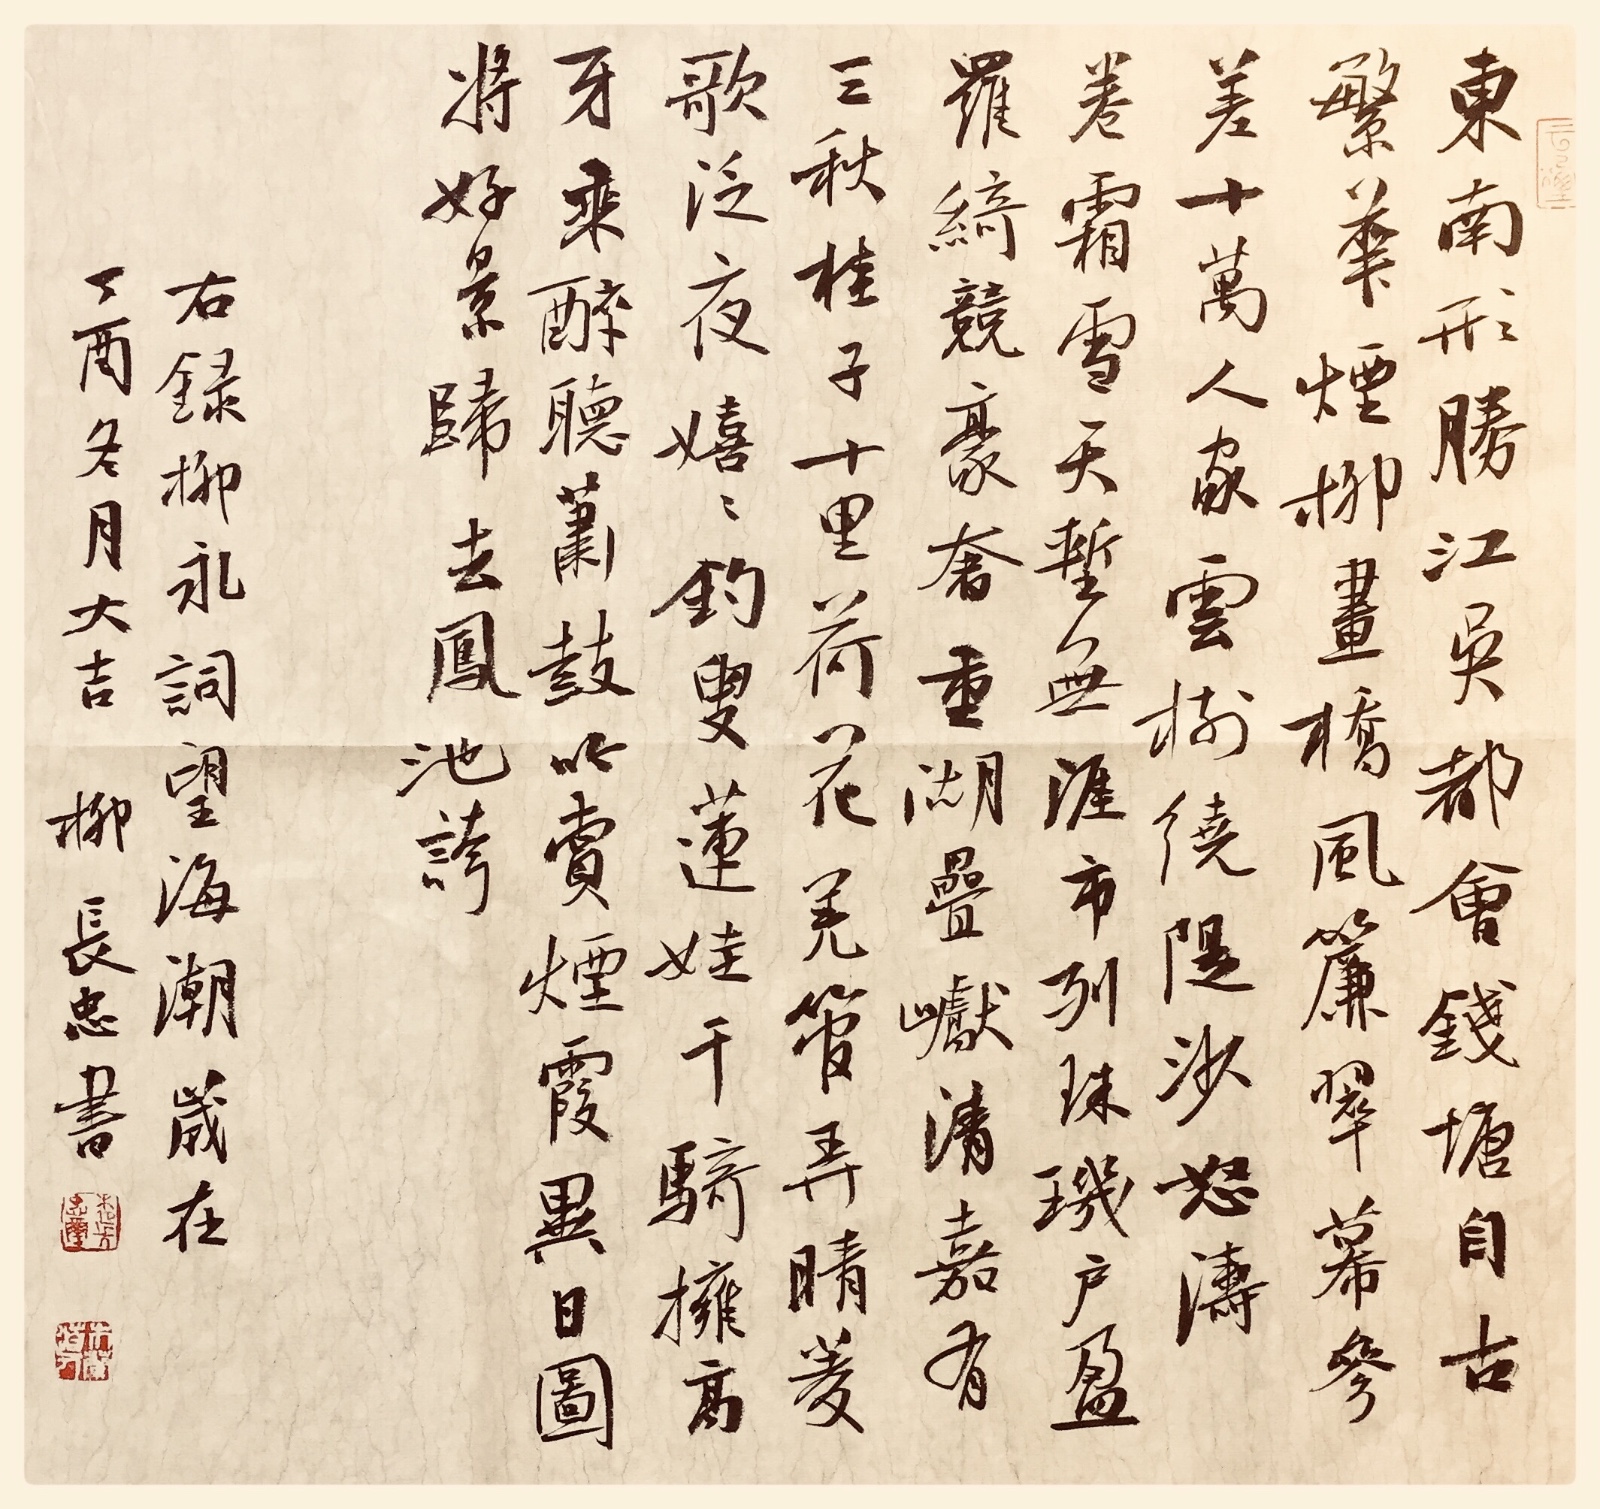 東南形勝江吳都會錢塘自古
繁華煙柳畫橋風簾翠幕參
差十萬人家雲樹繞隄沙怒濤
卷霜雪天塹無涯市列珠璣戶盈
羅綺競豪奢重湖疊巘清嘉有
三秋桂子十里荷花羌管弄晴菱
歌泛夜嬉〻釣叟蓮娃千騎擁高
牙乘醉聽蕭鼓吟賞煙霞異日圖
將好景歸去鳳池誇
右録柳永詞望海潮歲在
丁酉冬月大吉 柳長忠書